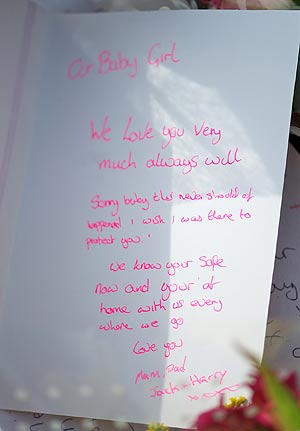 Our Baby Girl
We Love you Very
much always will
Sorry baby this never should of
happened I wish I was there to
protect you.
We know your Safe
now and your at
home with us every
where we go
Love you
Mam, Dad
Jack + Harry